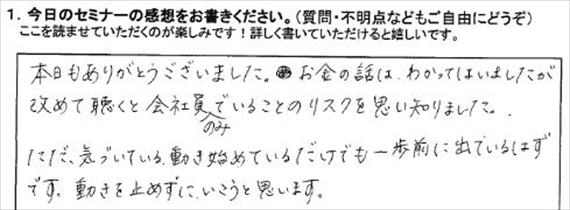 1. 今日のセミナーの感想をお書きください。（質問・不明点などもご自由にどうぞ）
ここを読ませていただくのが楽しみです！詳しく書いていただけると嬉しいです。
本日もありがとうございました。お金の話は、わかってはいましたが
改めて聴くと会社員のみでいることのリスクを思い知りました。
ただ、気づいている、動き始めているだけでも一歩前に出ているはず
です。動きを止めずに、いこうと思います。